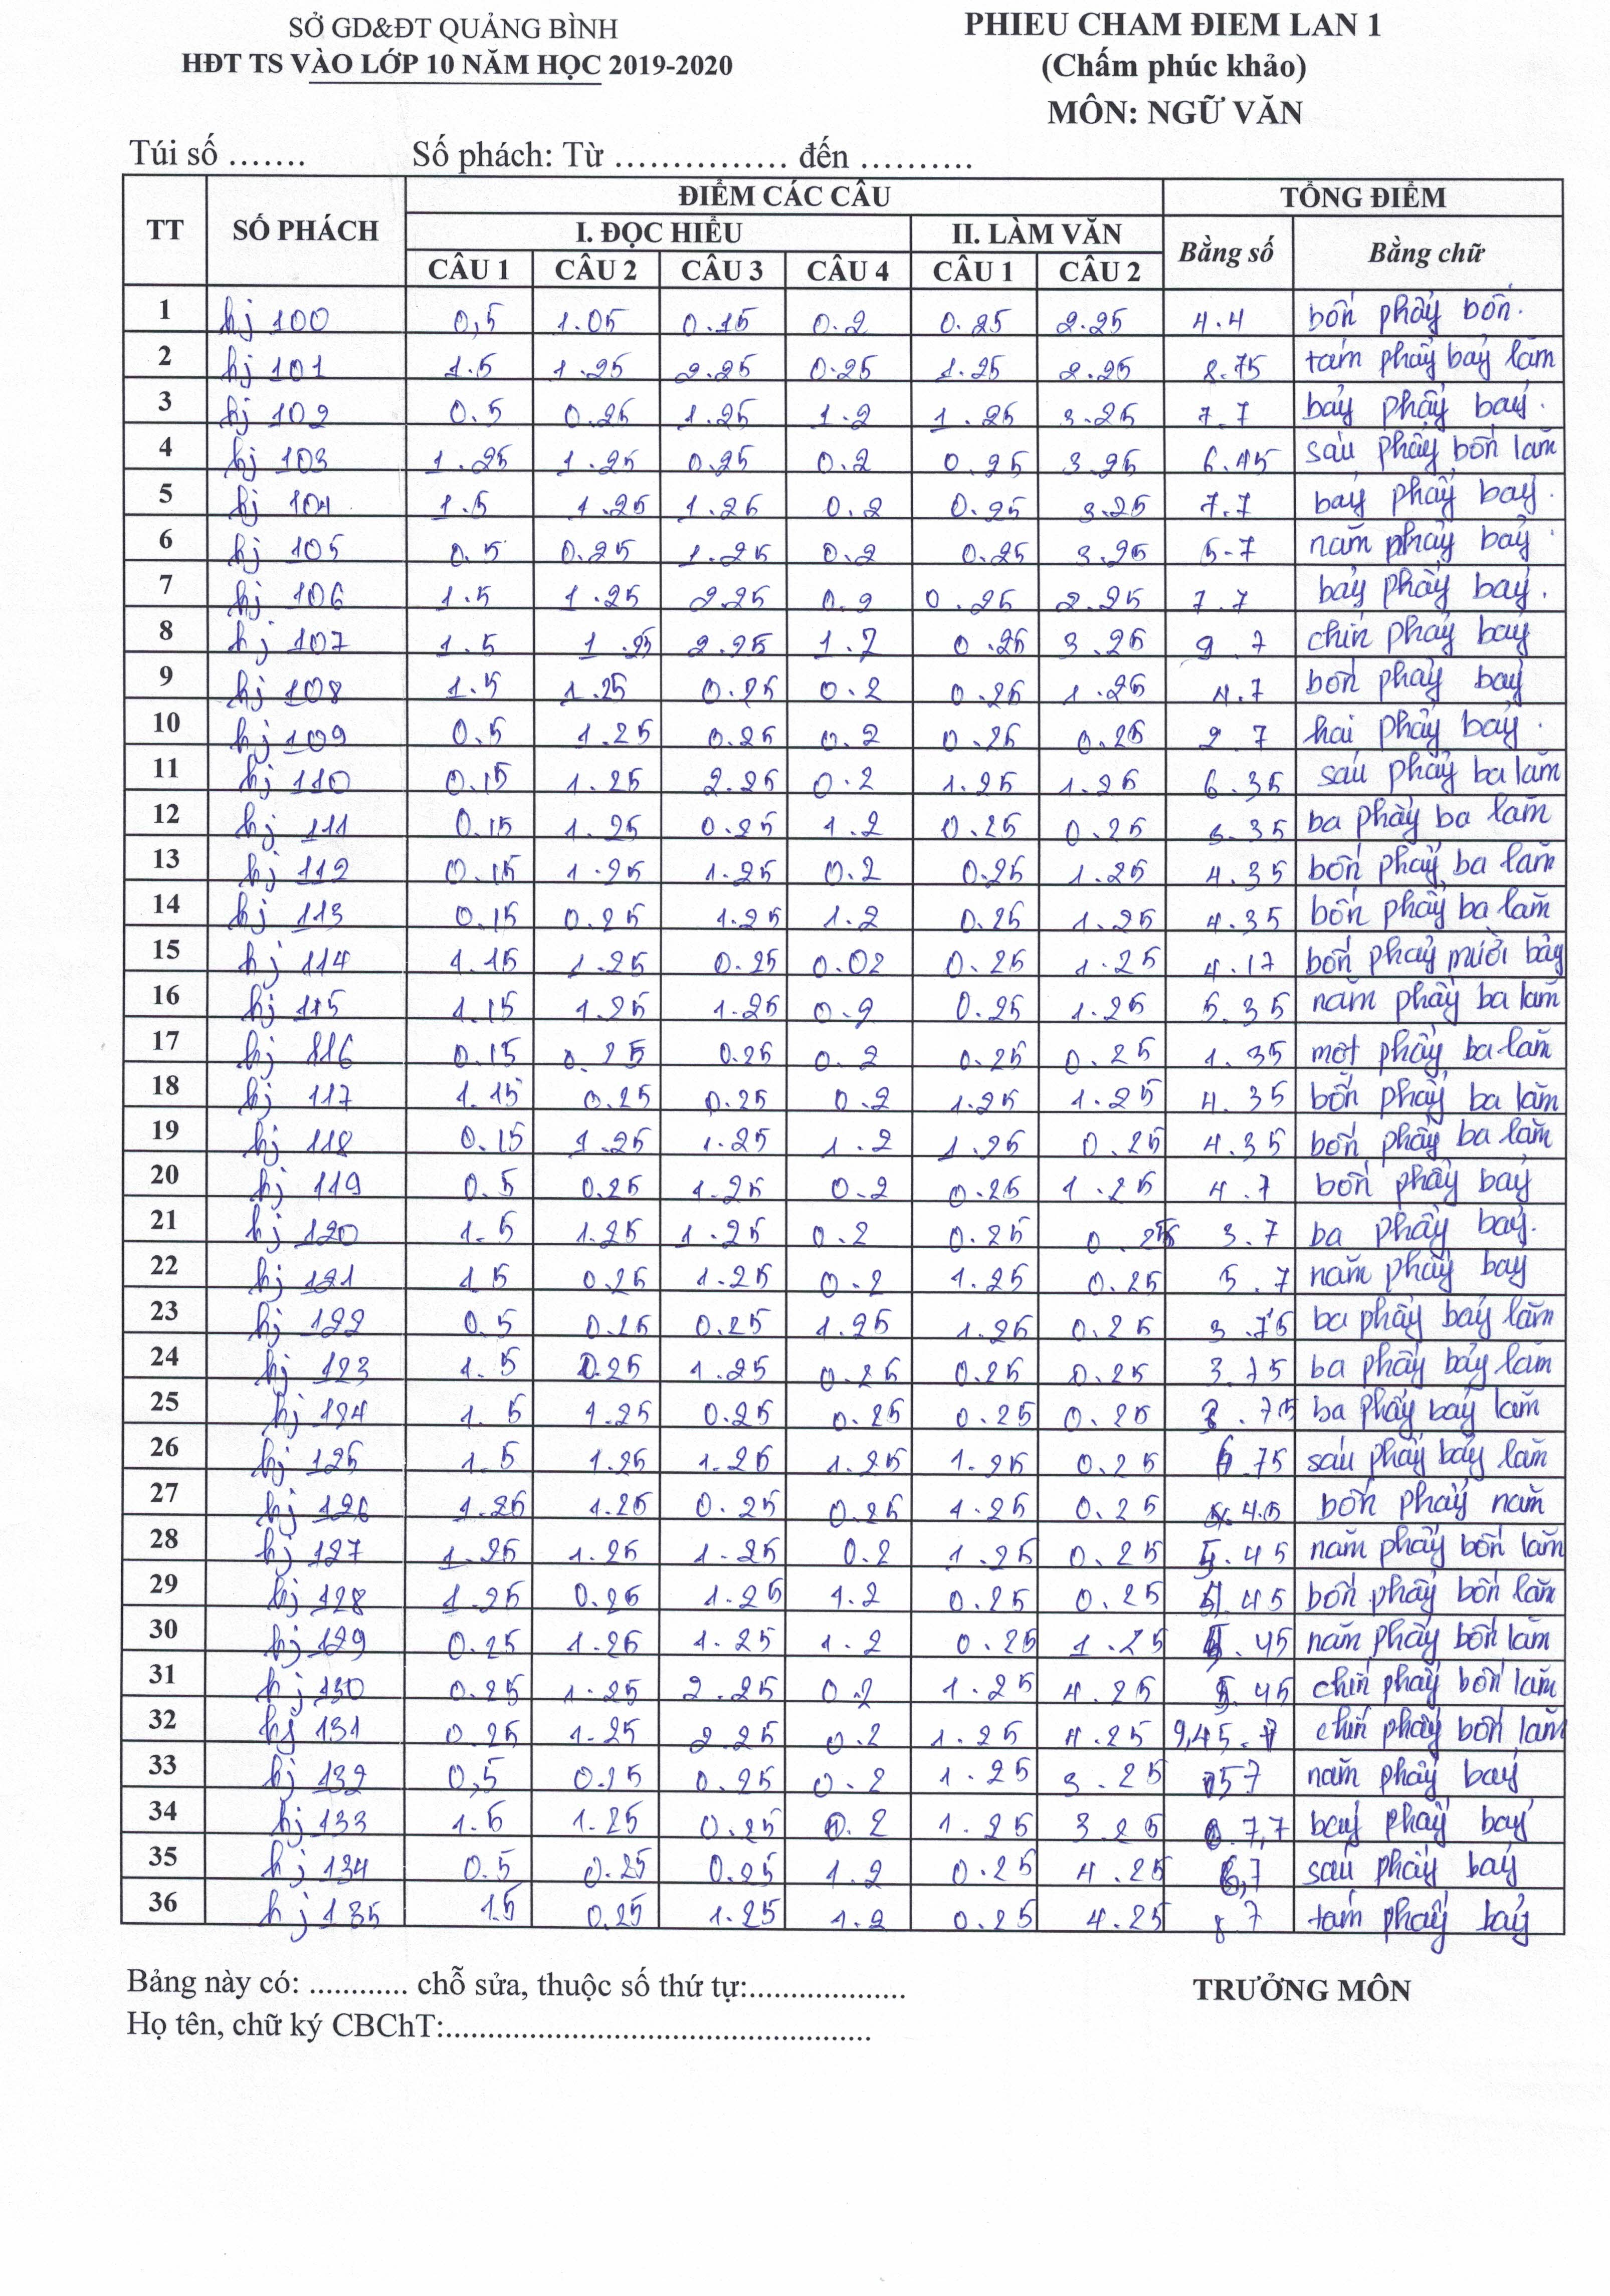 SỞ GD&ĐT QUẢNG BÌNH
HĐT TS VÀO LỚP 10 NĂM HỌC 2019-2020
PHIEU CHAM ĐIEM LAN 1
(Chấm phúc khảo)
MÔN: NGỮ VĂN
Túi số ....... Số phách: Từ ............... đến ..........
TT SỐ PHÁCH ĐIỂM CÁC CÂU TỔNG ĐIỂM
I. ĐỌC HIỂU II. LÀM VĂN Bằng số Bằng chữ
CÂU 1 CÂU 2 CÂU 3 CÂU 4 CÂU 1 CÂU 2
1 hj 100 0,5 1.05 0.15 0.2 0.25 2.25 4.4 bốn phẩy bốn.
2 hj 101 1.5 1.25 2.25 0.25 1.25 2.25 8.75 tám phẩy bảy lăm
3 hj 102 0.5 0.25 1.25 1.2 1.25 3.25 7.7 bảy phẩy bảy.
4 hj 103 1.25 1.25 0.25 0.2 0.25 3.25 6.45 sáu phẩy bốn lăm
5 hj 104 1.5 1.25 1.25 0.2 0.25 3.25 7.7 bảy phẩy bảy.
6 hj 105 0.5 0.25 1.25 0.2 0.25 3.25 5.7 năm phẩy bảy
7 hj 106 1.5 1.25 2.25 0.2 0.25 2.25 7.7 bảy phẩy bảy.
8 hj 107 1.5 1.25 2.25 1.2 0.25 3.25 9.7 chín phẩy bảy
9 hj 108 1.5 1.25 0.25 0.2 0.25 1.25 4.7 bốn phẩy bảy
10 hj 109 0.5 1.25 0.25 0.2 0.25 0.25 2.7 hai phẩy bảy.
11 hj 110 0.15 1.25 2.25 0.2 1.25 1.25 6.35 sáu phẩy ba lăm
12 hj 111 0.15 1.25 0.25 1.2 0.25 0.25 3.35 ba phẩy ba lăm
13 hj 112 0.15 1.25 1.25 0.2 0.25 1.25 4.35 bốn phẩy ba lăm
14 hj 113 0.15 0.25 1.25 1.2 0.25 1.25 4.35 bốn phẩy ba lăm
15 hj 114 1.15 1.25 0.25 0.02 0.25 1.25 4.17 bốn phẩy mười bảy
16 hj 115 1.15 1.25 1.25 0.2 0.25 1.25 5.35 năm phẩy ba lăm
17 hj 116 0.15 0.25 0.25 0.2 0.25 0.25 1.35 một phẩy ba lăm
18 hj 117 1.15 0.25 0.25 0.2 1.25 1.25 4.35 bốn phẩy ba lăm
19 hj 118 0.15 1.25 1.25 1.2 1.25 0.25 4.35 bốn phẩy ba lăm
20 hj 119 0.5 0.25 1.25 0.2 0.25 1.25 4.7 bốn phẩy bảy
21 hj 120 1.5 1.25 1.25 0.2 0.25 0.25 3.7 ba phẩy bảy.
22 hj 121 1.5 0.25 1.25 0.2 1.25 0.25 5.7 năm phẩy bảy
23 hj 122 0.5 0.25 0.25 1.25 1.25 0.25 3.75 ba phẩy bảy lăm
24 hj 123 1.5 0.25 1.25 0.25 0.25 0.25 3.75 ba phẩy bảy lăm
25 hj 124 1.5 1.25 0.25 0.25 0.25 0.25 3.75 ba phẩy bảy lăm
26 hj 125 1.5 1.25 1.25 1.25 1.25 0.25 6.75 sáu phẩy bảy lăm
27 hj 126 1.25 1.25 0.25 0.25 1.25 0.25 4.5 bốn phẩy năm
28 hj 127 1.25 1.25 1.25 0.2 1.25 0.25 5.45 năm phẩy bốn lăm
29 hj 128 1.25 0.25 1.25 1.2 0.25 0.25 4.45 bốn phẩy bốn lăm
30 hj 129 0.25 1.25 1.25 1.2 0.25 1.25 5.45 năm phẩy bốn lăm
31 hj 130 0.25 1.25 2.25 0.2 1.25 4.25 9.45 chín phẩy bốn lăm
32 hj 131 0.25 1.25 2.25 0.2 1.25 4.25 9,45 chín phẩy bốn lăm
33 hj 132 0,5 0.25 0.25 0.2 1.25 3.25 57 năm phẩy bảy
34 hj 133 1.5 1.25 0.25 0.2 1.25 3.25 7,7 bảy phẩy bảy
35 hj 134 0.5 0.25 0.25 1.2 0.25 4.25 6,7 sáu phẩy bảy
36 hj 135 1.5 0.25 1.25 1.2 0.25 4.25 8.7 tám phẩy bảy
Bảng này có: ............ chỗ sửa, thuộc số thứ tự:...................
TRƯỞNG MÔN
Họ tên, chữ ký CBChT:....................................................